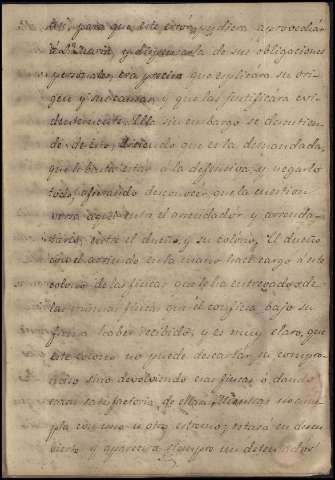 para que este error, pudiera aprovechar
á Dª Maria y dispensarla de sus obligaciones
personales, era preciso que esplicára su ori-
gen y sus causas, y que las justificára evi-
dentemente. Ella sin embargo se desentien-
de de esto, diciendo que es la demandada,
que le basta estar á la defensiva y negarlo
todo, afirmando desconocer, que la cuestion
versa aqui entre el arrendador y arrenda-
tario, entre el dueño, y su colono. El dueño
con el arriendo en la mano hace cargo á este
colono de las fincas que le ha entregado, de
las mismas fincas que él confiesa bajo su
firma haber recibido, y es muy claro, que
este colono no puede descartar su compro-
miso sino devolviendo esas fincas, ó dando
razon satisfactoria de ellas. Mientras no cum-
pla con uno u otro estremo, estará en descu-
bierto y aparecerá siempre un detentador